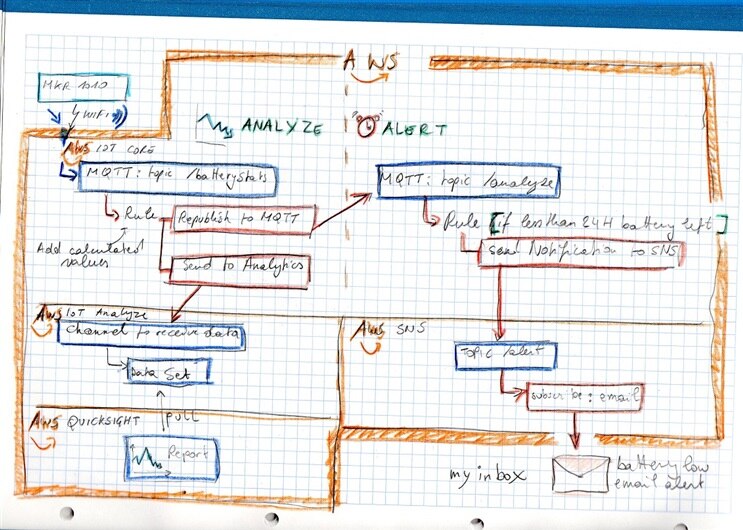 AWS
MKR 1010
WiFi
ANALYZE
ALERT
AWS IOT CORE
MQTT: topic /batteryStats
MQTT: topic /analyze
Rule
Republish to MQTT
Rule [if less than 24H battery left]
Add calculated
values
Send to Analytics
Send Notification to SNS
AWS IoT Analyze
Channel to receive data
AWS SNS
Data Set
Topic /alert
subscribe: email
pull
AWS QUICKSIGHT
Report
my inbox
battery low
email alert